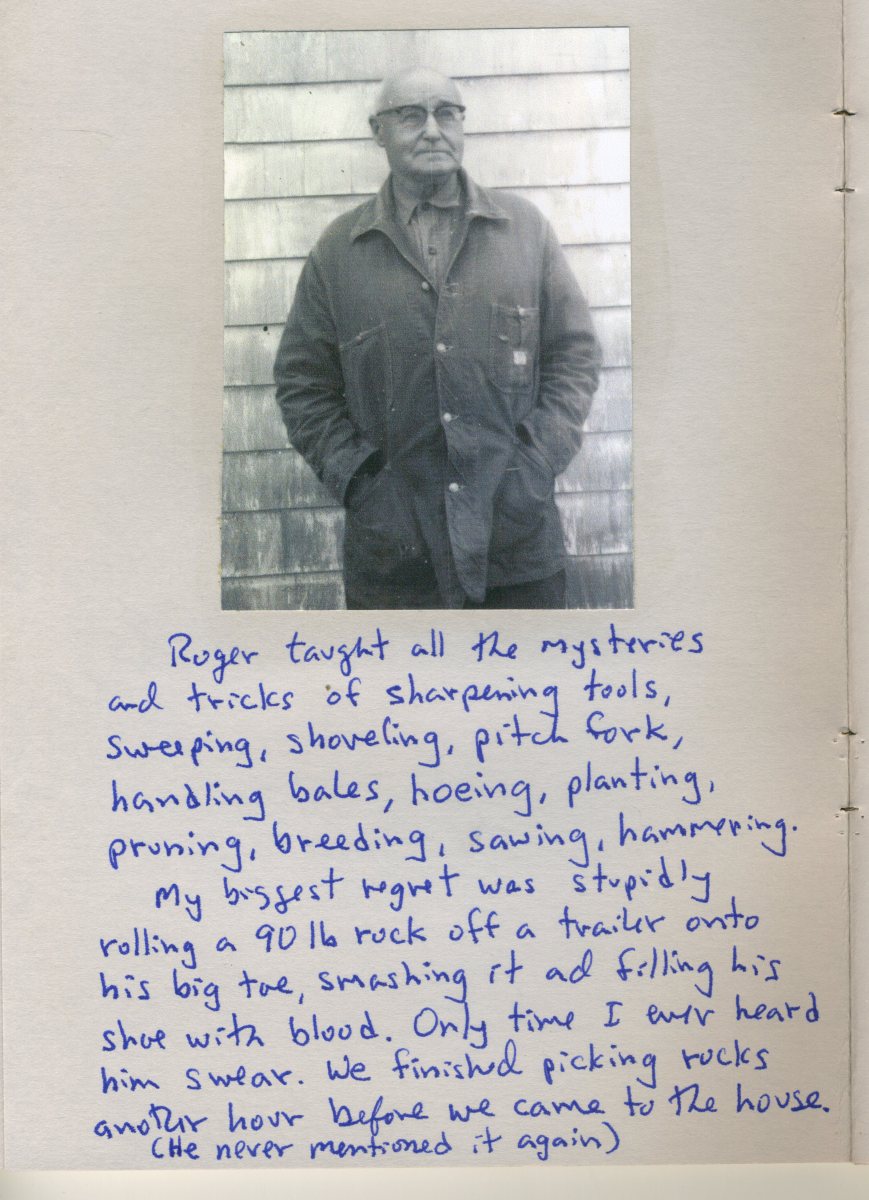 Roger taught all the mysteries
and tricks of sharpening tools,
sweeping, shoveling, pitch fork,
handling bales, hoeing, planting,
pruning, breeding, sawing, hammering.
My biggest regret was stupidly
rolling a 90 lb rock off a trailer onto
his big toe, smashing it ad filling his
shoe with blood. Only time I ever heard
him swear. We finished picking rocks
another hour before we came to the house.
(He never mentioned it again)